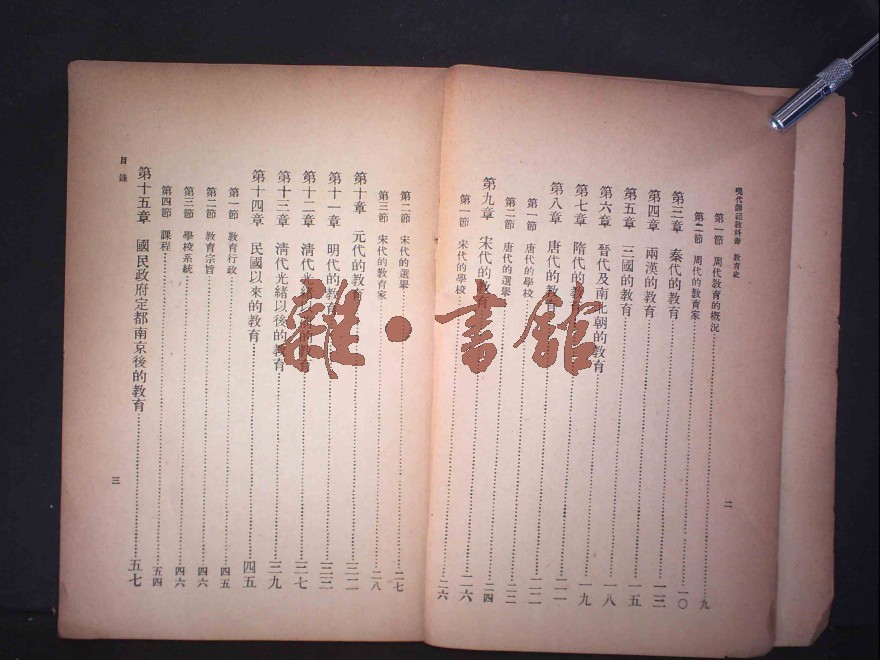 現代師範教科書 教育史
第一節 周代教育的概況 九
第二節 周代的教育家 一〇
第三章 秦代的教育
第四章 兩漢的教育 一三
第五章 三國的教育 一五
第六章 晉代及南北朝的教育 一八
第七章 隋代的教育 一九
第八章 唐代的教育 二一
第一節 唐代的學校 二二
第二節 唐代的選舉 二三
第九章 宋代的教育 二四
第一節 宋代的學校 二六
二
第二節 宋代的選舉 二七
第三節 宋代的教育家 二八
第十章 元代的教育 三二
第十一章 明代的教育 三三
第十二章 清代光緒以前的教育 三七
第十三章 清代光緒以後的教育 三九
第十四章 民國以來的教育 四五
第一節 教育行政 四五
第二節 教育宗旨 四六
第三節 學校系統 四六
第四節 課程 五四
第十五章 國民政府定都南京後的教育 五七
目錄
三
雜·書館